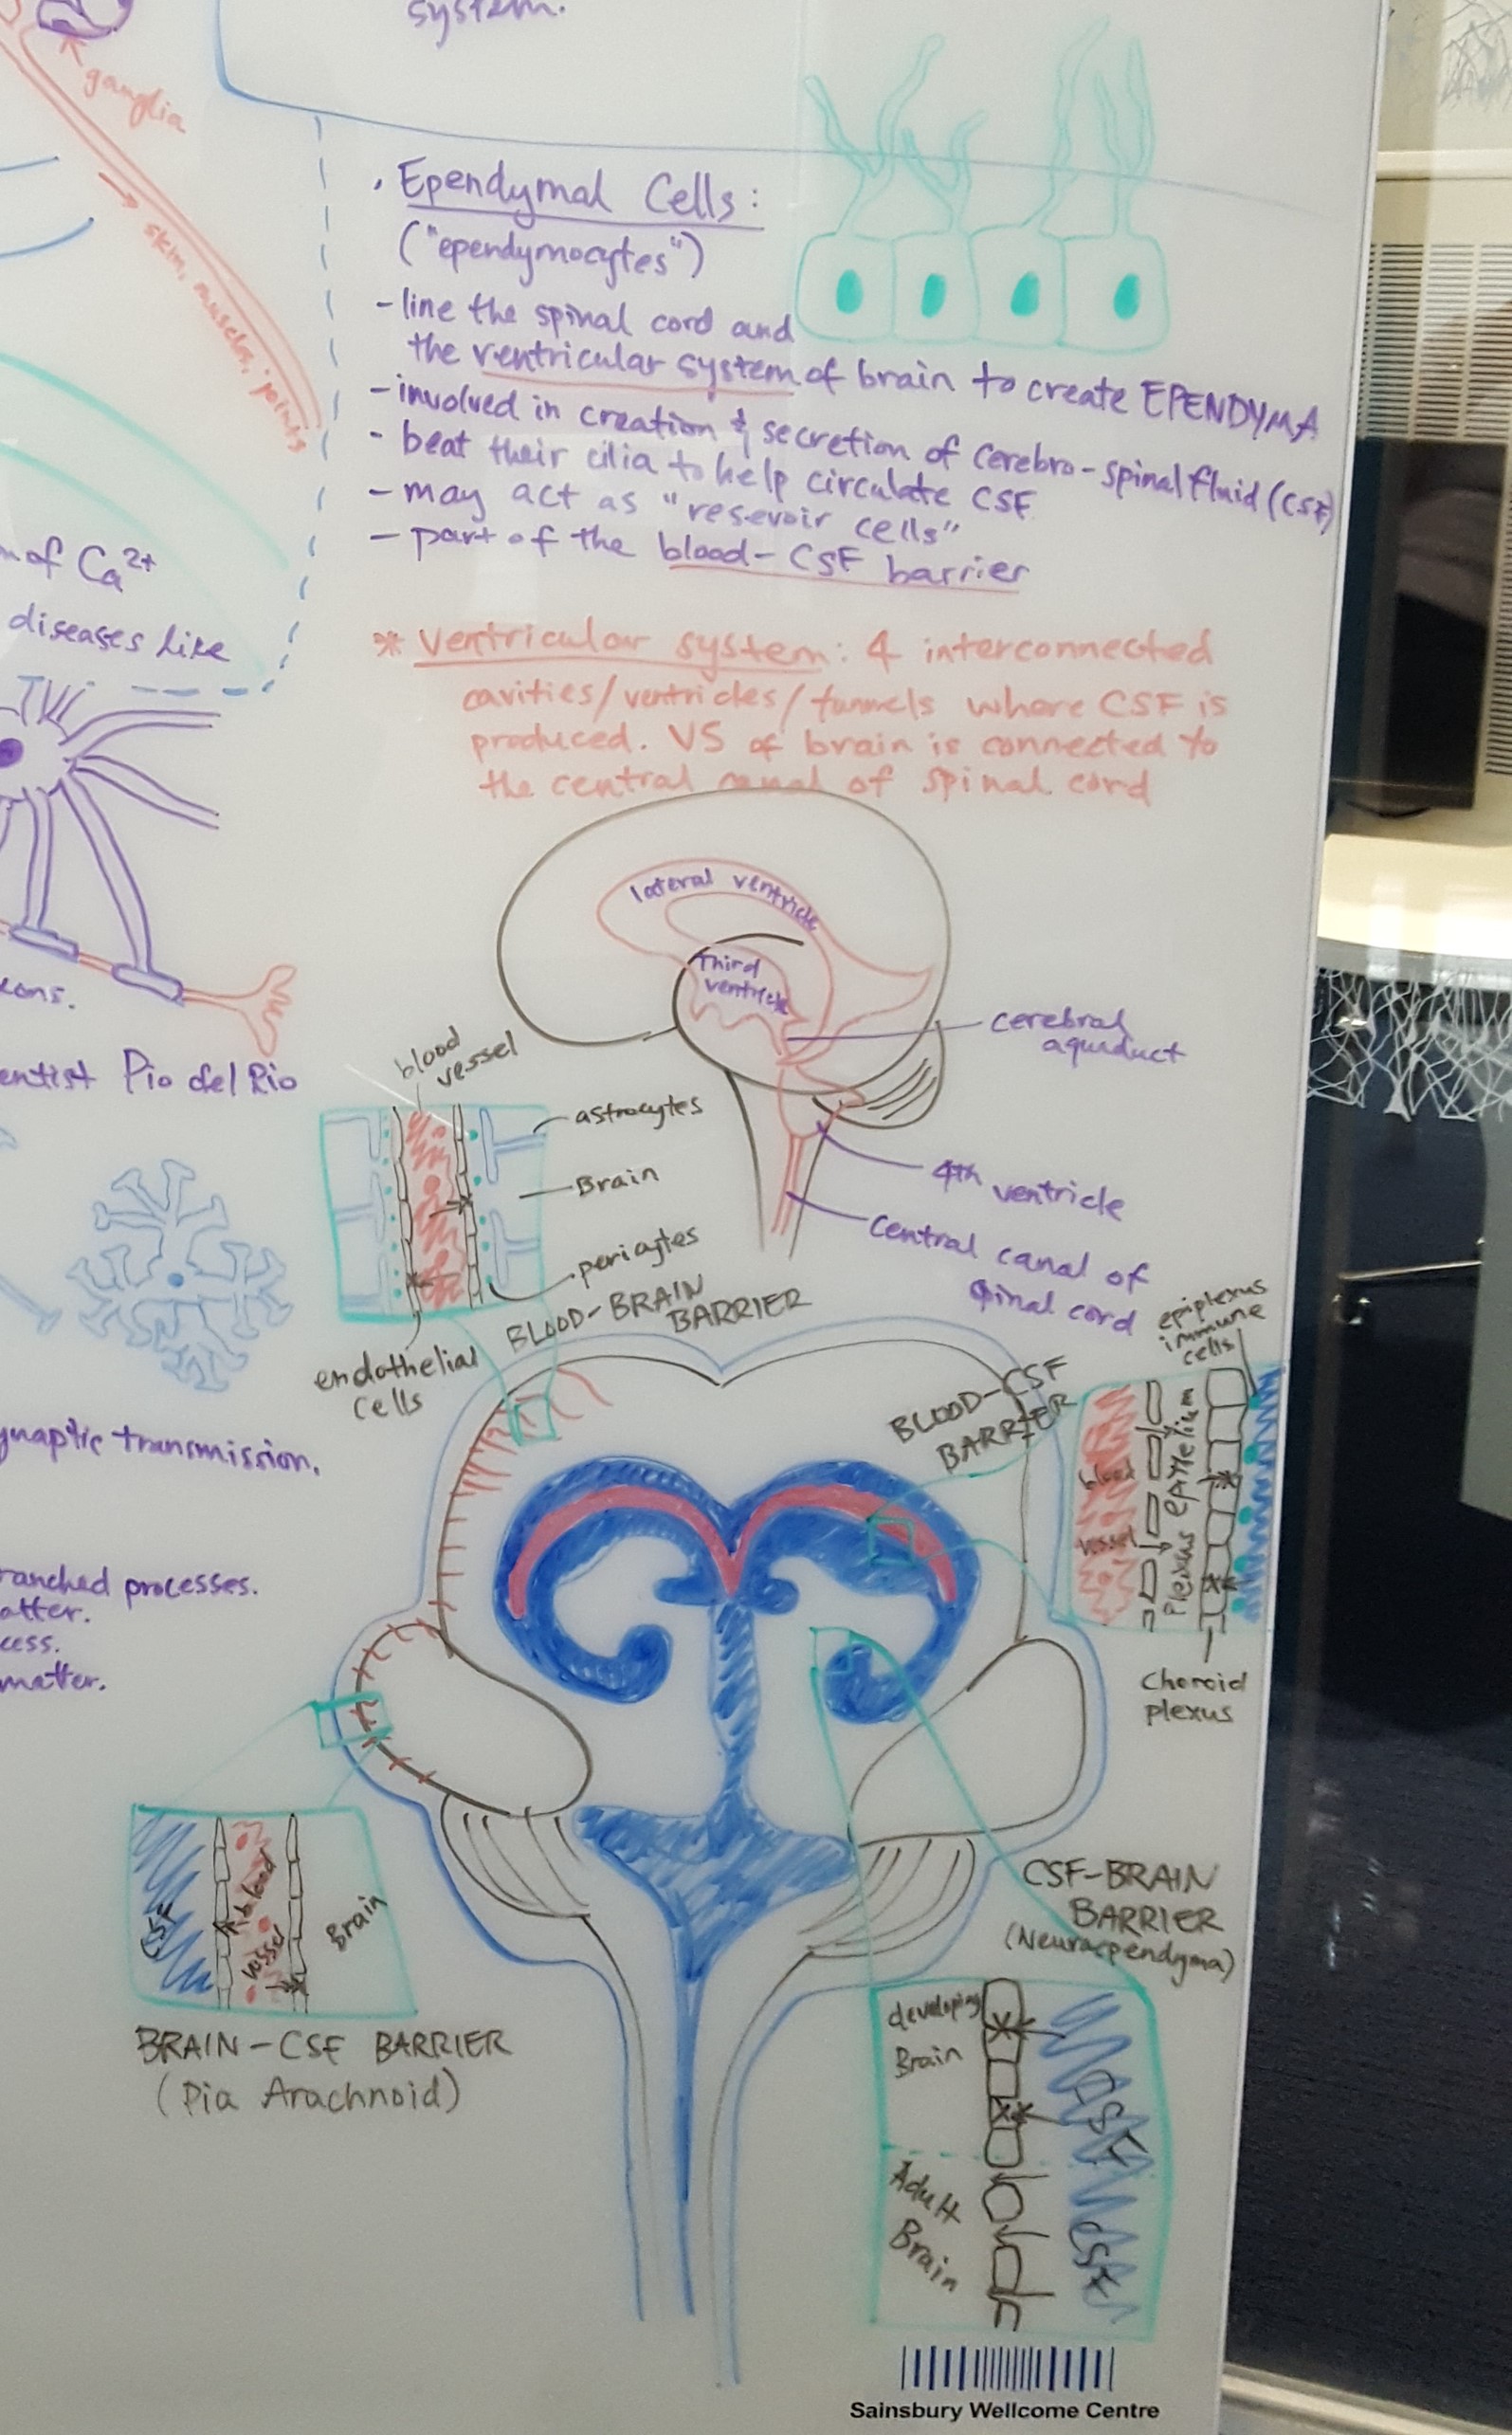 system.
ganglia
skin, muscles, joints
• Ependymal Cells:
("ependymocytes")
- line the spinal cord and
the ventricular system of brain to create EPENDYMA
- involved in creation & secretion of cerebro-spinal fluid (CSF)
- beat their cilia to help circulate CSF
- may act as "resevoir cells"
- part of the blood-CSF barrier
of Ca2+
diseases like
* Ventricular system: 4 interconnected
cavities/ventricles/funnels where CSF is
produced. VS of brain is connected to
the central canal of spinal cord
lateral ventricle
Third
ventricle
cerebral
aqueduct
4th ventricle
central canal of
spinal cord
Pio del Rio
blood
vessel
astrocytes
Brain
pericytes
endothelial
cells
BLOOD-BRAIN
BARRIER
synaptic transmission.
branched processes.
matter.
BLOOD-CSF
BARRIER
epiplexus
immune
cells
blood
vessel
Plexus epithelium
Choroid
plexus
CSF
blood
vessel
Brain
BRAIN-CSF BARRIER
(Pia Arachnoid)
CSF-BRAIN
BARRIER
(Neuraependyma)
developing
Brain
CSF
Adult
Brain
CSF
Sainsbury Wellcome Centre